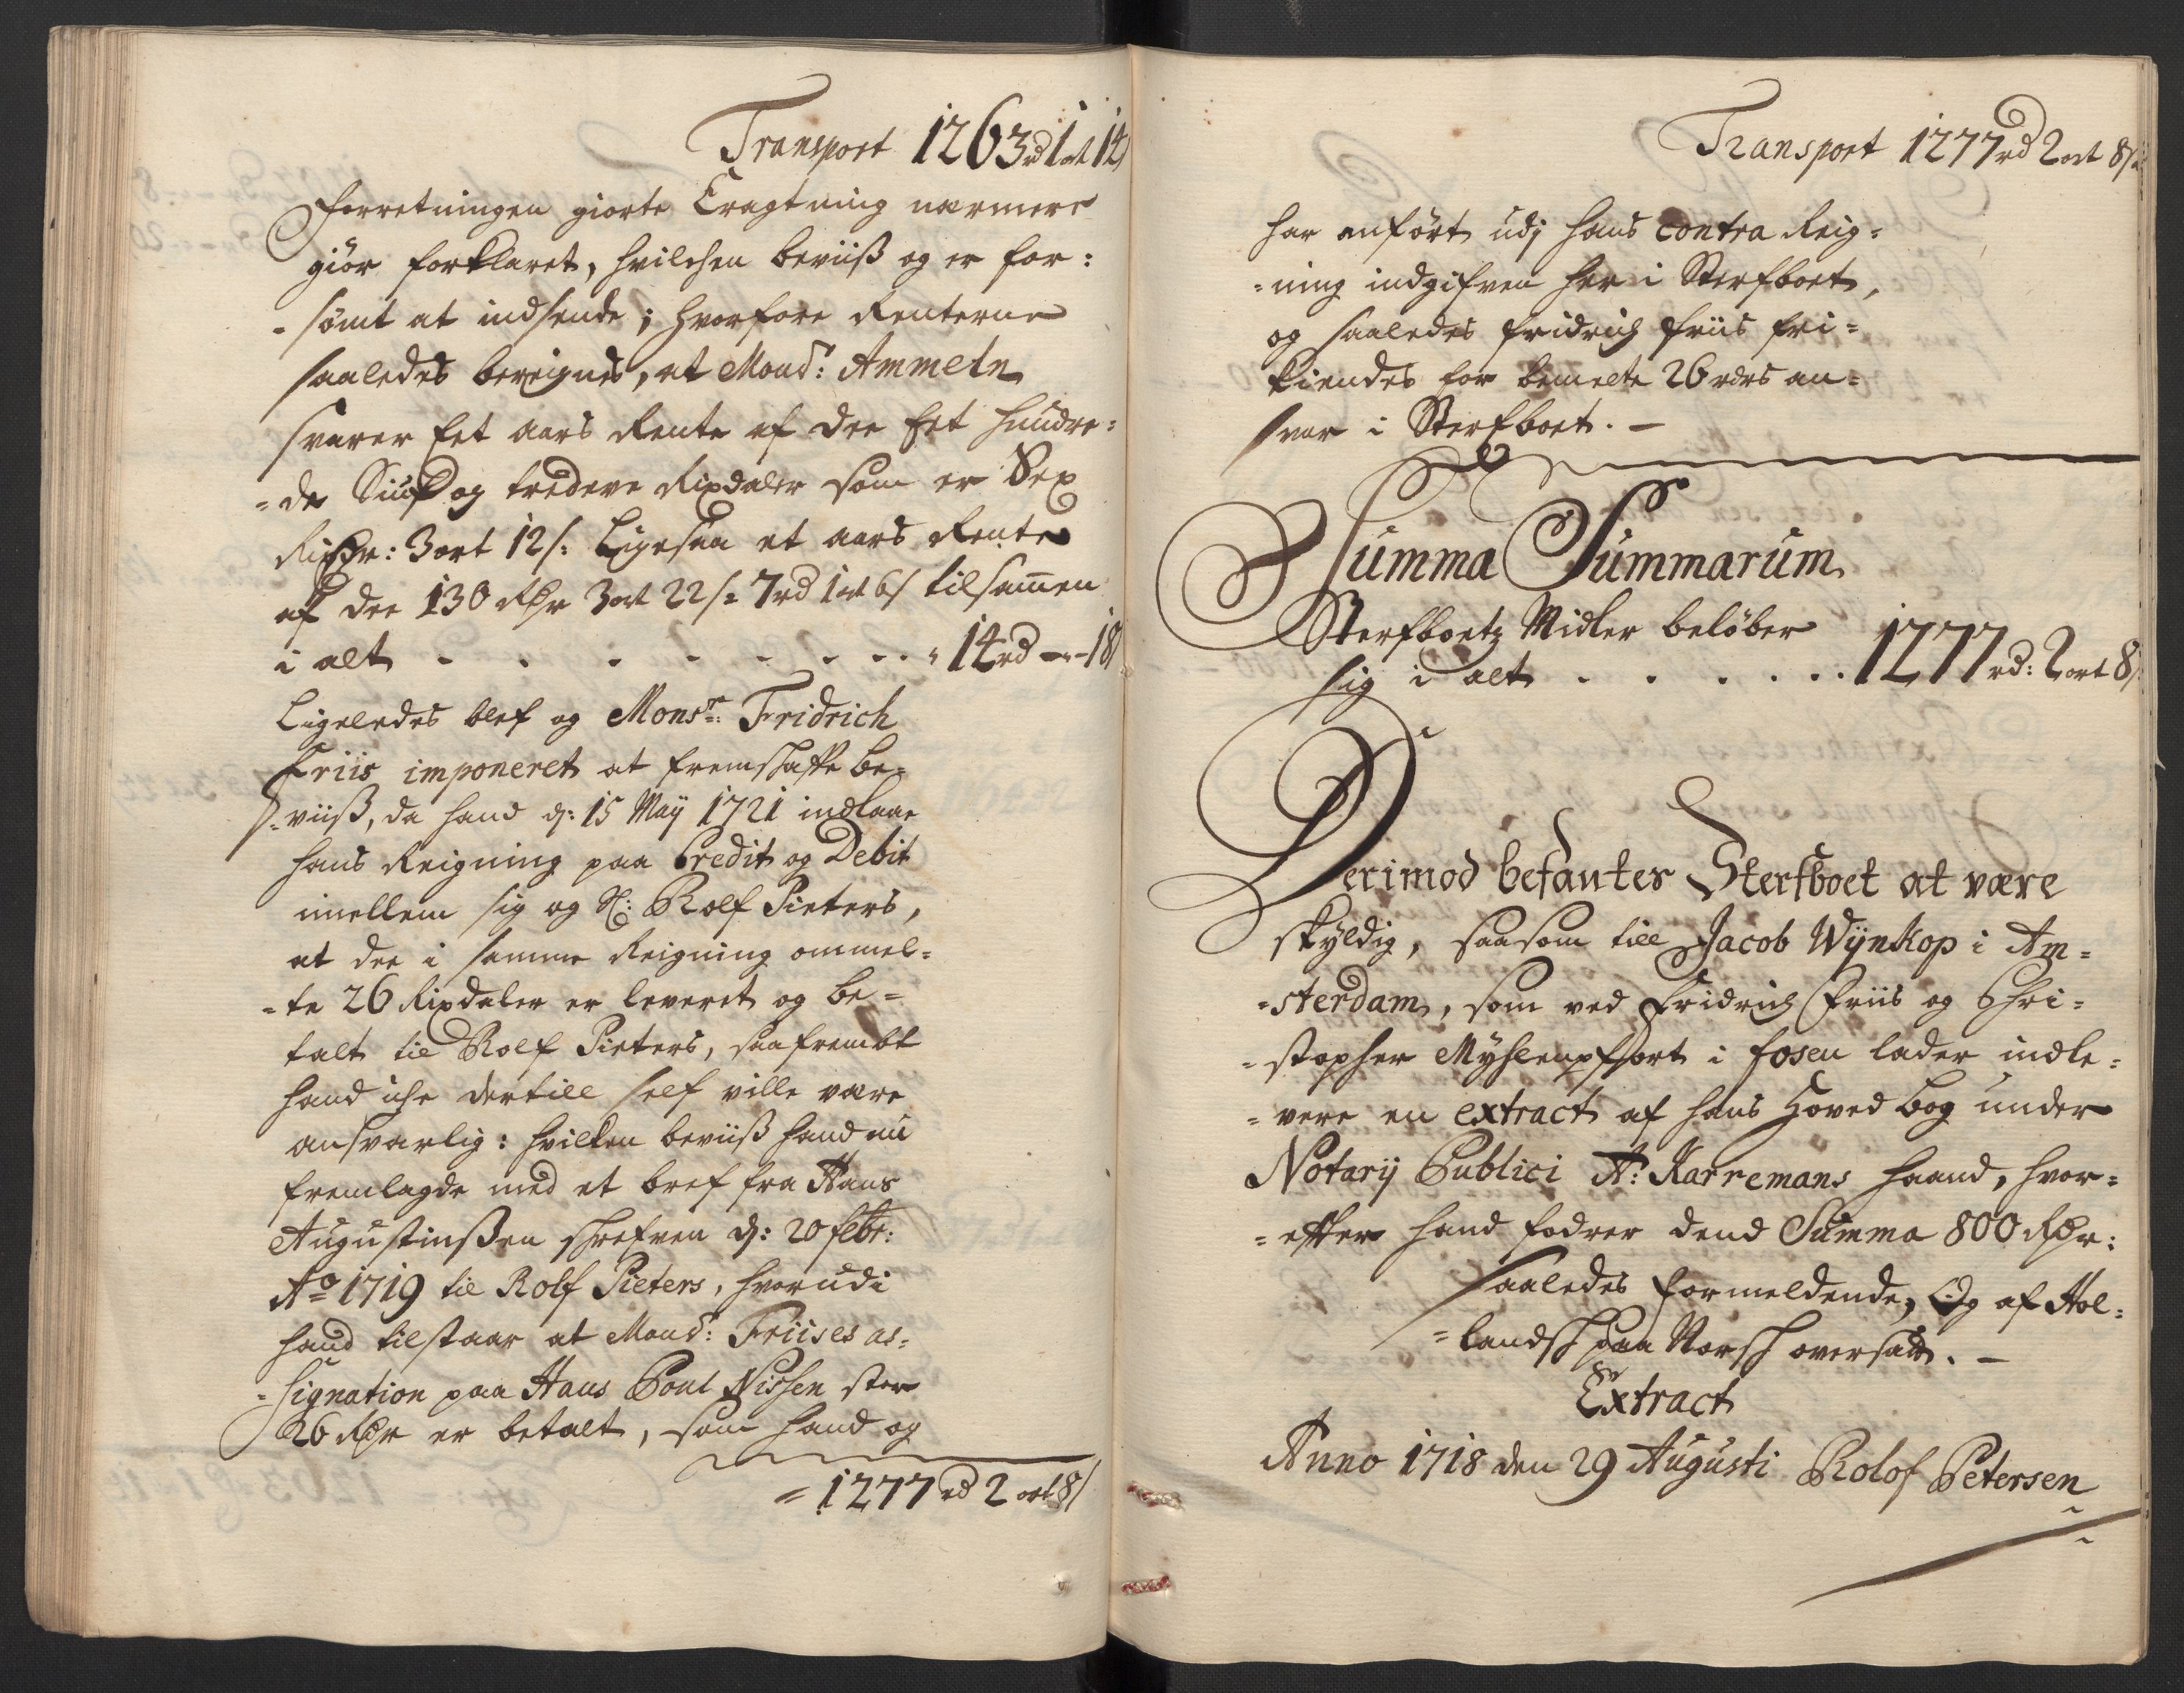 Transport 1263 rd 1 ort 14/
forretningen giorte Eragtning nærmere
giör forklaret, hvilchen beviiß og er for:
-sömt at indsende; hvorfore Renterne
saaledes bereignes, at Mons.r: Ammeln
svarer Eet aars Rente af dee Eet hundre:
=de Siuf og tredeve Rixdaler som er Sex
Rixdr: 3 ort 12/: Ligesaa et aars Rente
af dee 130 Rdr 3 ort 22/= 7 rd 1 ort 6/ tilsam̄en
i alt - - - - - - - - 14 rd - 18/
Ligeledes blef og Monsr: Fridrich
Friis imponeret at fremskaffe be-
=viiß, da hand d: 15 Maÿ 1721 indlaae
hans Reigning paa Credit og Debit
imellem sig og Sl: Rolf Pieters,
at dee i samme Reigning ommel=
=te 26 Rixdaler er leveret og be=
talt til Rolf Pieters, saafrembt
hand iche dertill self ville være
ansvarlig: hvilken beviiß hand nu
fremlagde med et bref fra Hans
Augustinßen skrefven d: 20 febr:
Ao 1719 til Rolf Pieters, hvorudi
hand tilstaar at Mons.r: Friises as=
=signation paa Hans Poul Nissen stor
26 Rdr er betalt, som hand og
= 1277 rd 2 ort 8/
Transport 1277 rd 2 ort 8/
har anfört udj hans Contra Reig=
=ning indgifven her i Sterfboet,
og saaledes fridrich friis fri=
kiendes for bemelte 26 rdrs an=
svar i Sterfboet. -
Summa Summarum
Sterfboetz Midler belöber
sig i alt . . . . . . . 1277 rd: 2 ort 8/
Derimod befantes Sterfboet at være
skÿldig, saasom till Jacob Wÿnkop i Am=
=sterdam, som ved Fridrich Friis og Chri=
=stopher Mÿhlenpfort i Fosen lader indle=
=vere en extract af hans Hoved bog under
Notarÿ Publici A: Karremans haand, hvor=
=efter hand fodrer dend Summa 800 Rdr:
saaledes formeldende, Og af Hol=
=landsk paa Norsk oversatt. -
Extract
Anno 1718 den 29 Augusti Rolof Petersen